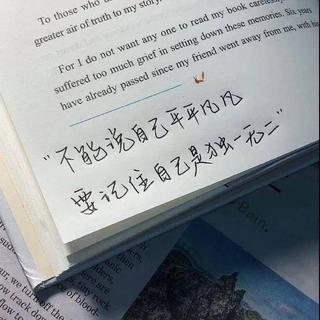 To those who
greater air of truth to my story.
For I do not want any one to read my book carelessly.
suffered too much grief in setting down these memories. Six years
have already passed since my friend went away from me, with his
"不能说自己平平凡凡
要记住自己是独一无二"
Bain.
we turn off the
row track down
of blood.